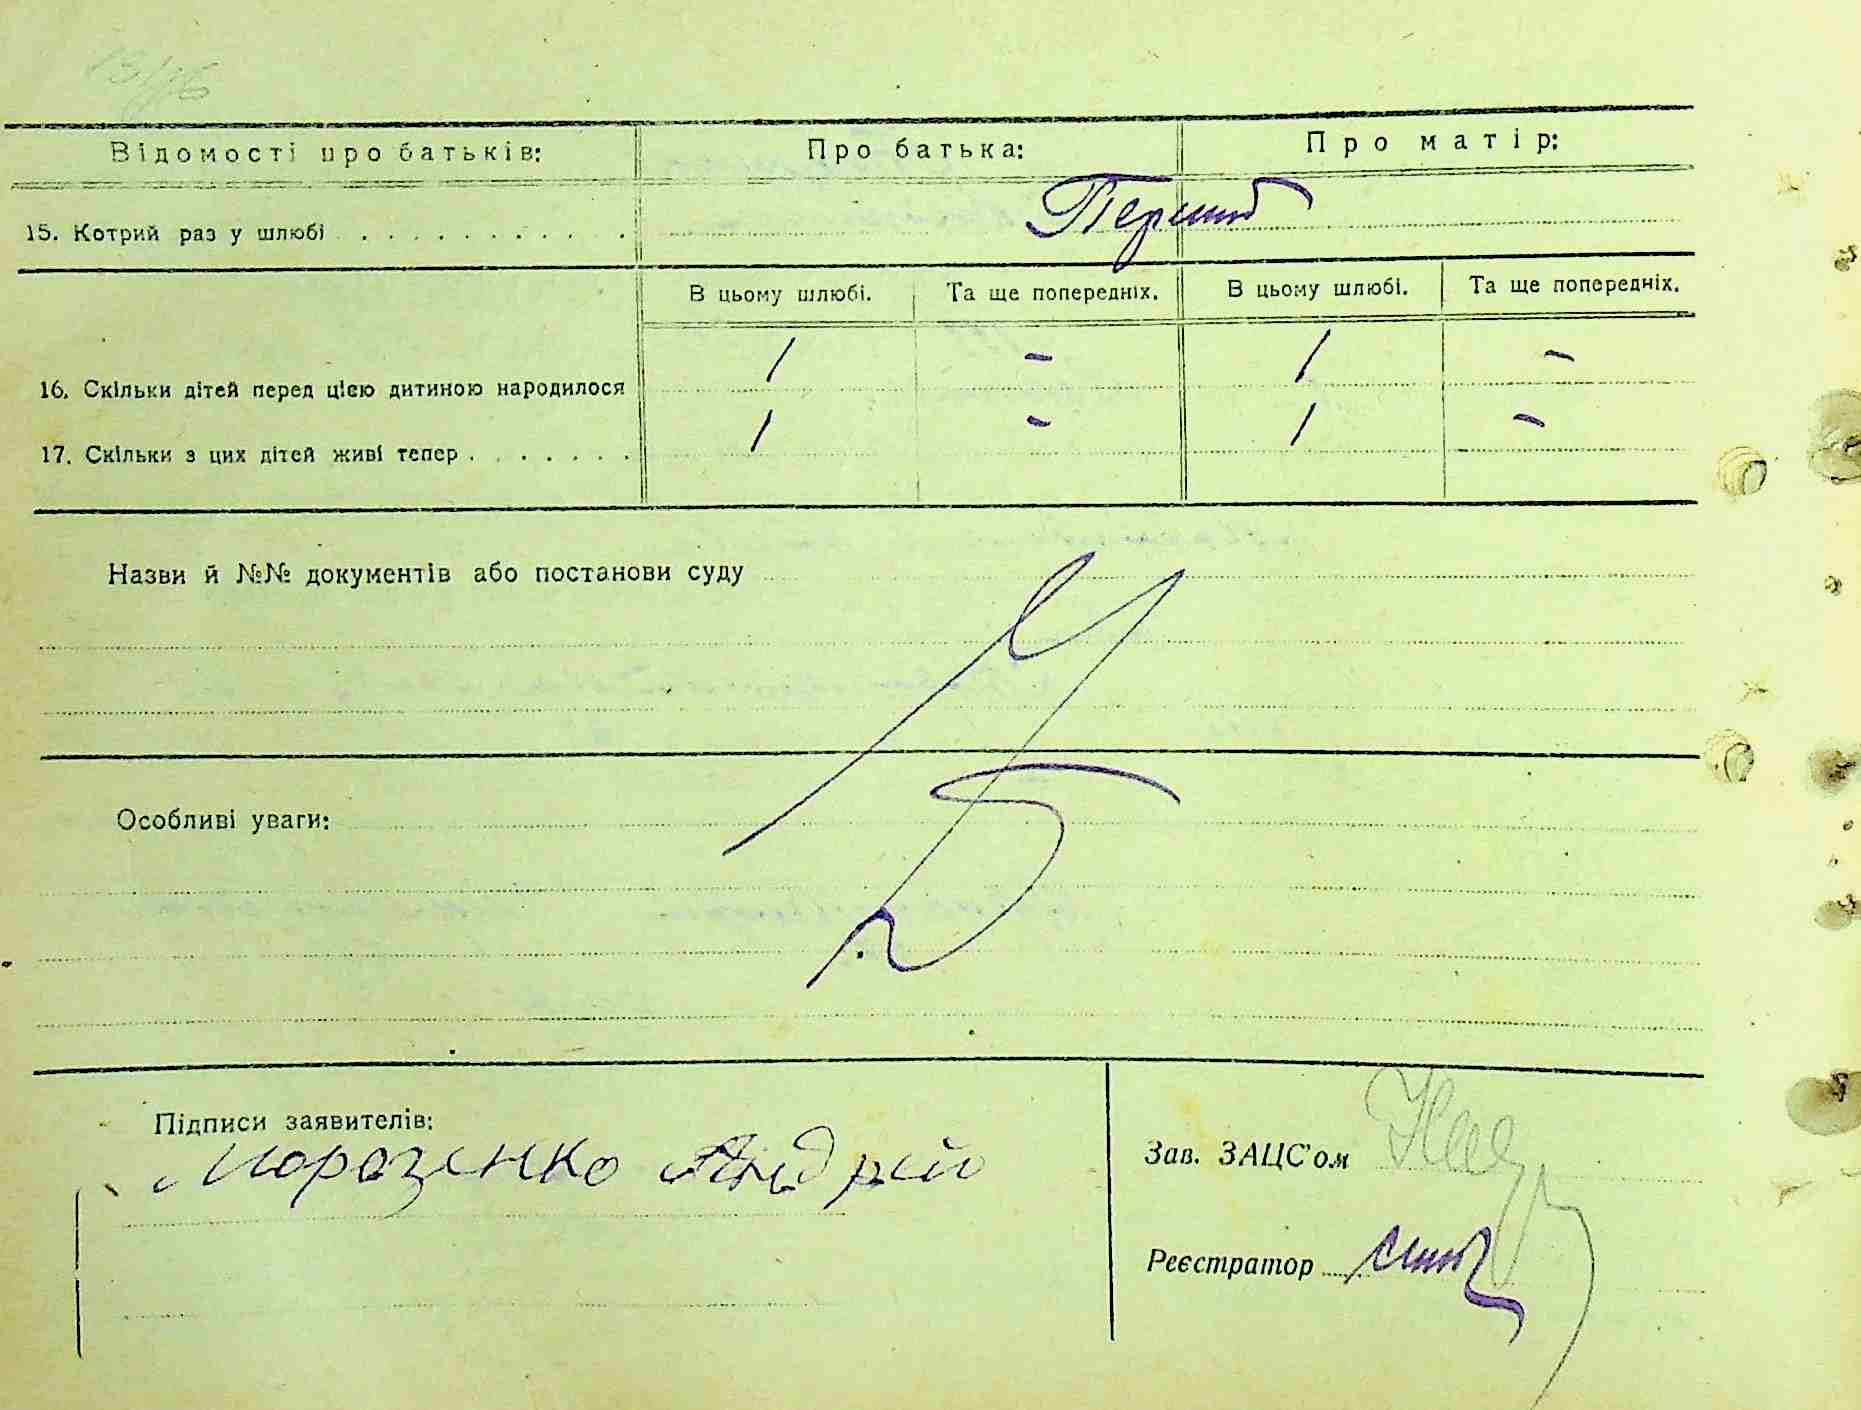 13/76
Відомості про батьків: Про батька: Про матір:
15. Котрий раз у шлюбі Перший
В цьому шлюбі. Та ще попередніх. В цьому шлюбі. Та ще попередніх.
16. Скільки дітей перед цією дитиною народилося 1 - 1 -
17. Скільки з цих дітей живі тепер 1 - 1 -
Назви й №№ документів або постанови суду
Особливі уваги:
Підписи заявителів:
Морозенко Андрій
Зав. ЗАЦС'ом
Реєстратор